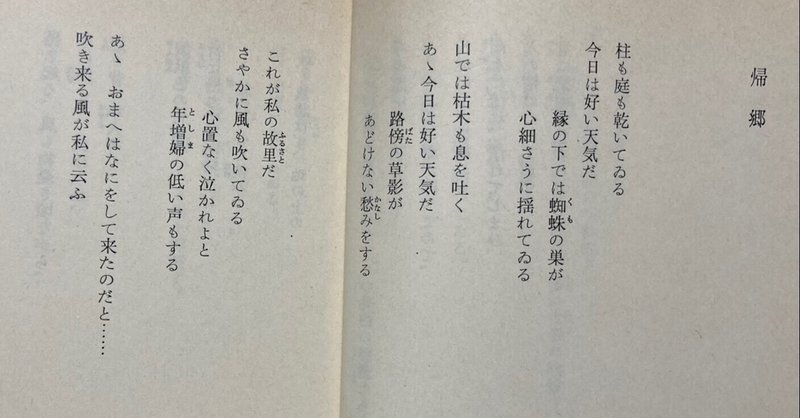 帰郷
柱も庭も乾いてゐる
今日は好い天気だ
縁の下では蜘蛛の巣が
心細さうに揺れてゐる
山では枯木も息を吐く
あゝ今日は好い天気だ
路傍の草影が
あどけない愁みをする
これが私の故里だ
さやかに風も吹いてゐる
心置なく泣かれよと
年増婦の低い声もする
あゝ おまへはなにをして来たのだと……
吹き来る風が私に云ふ